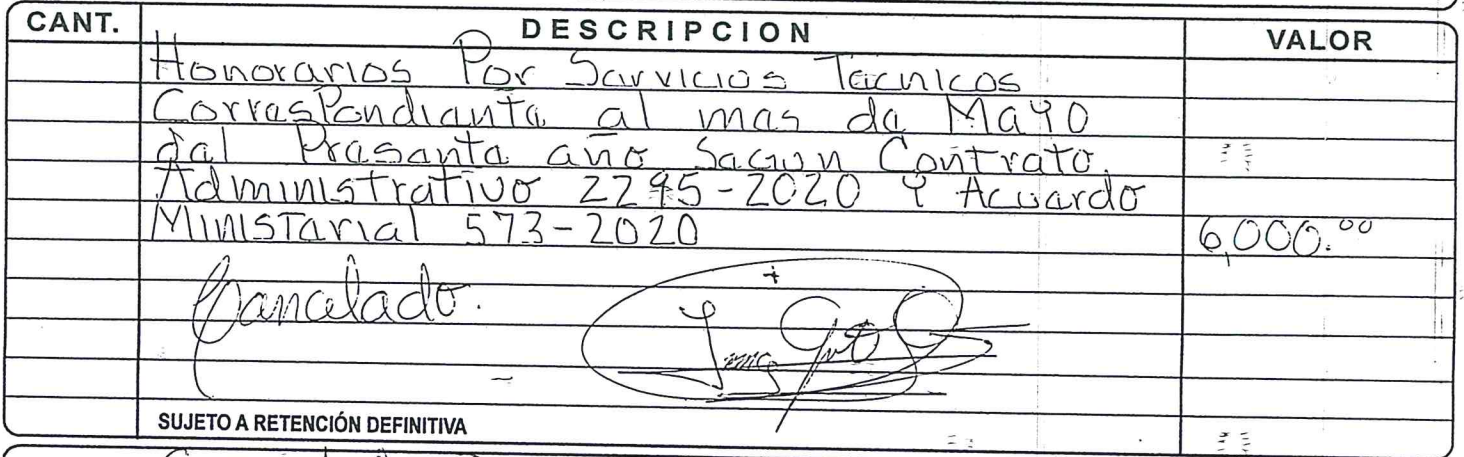 CANT. DESCRIPCION VALOR
Honorarios Por Servicios Tecnicos
Correspondiente al mes de Mayo
del Presente año Segun Contrato
Administrativo 2295-2020 Y Acuerdo
Ministerial 573-2020 6,000.00
Cancelado.
SUJETO A RETENCIÓN DEFINITIVA